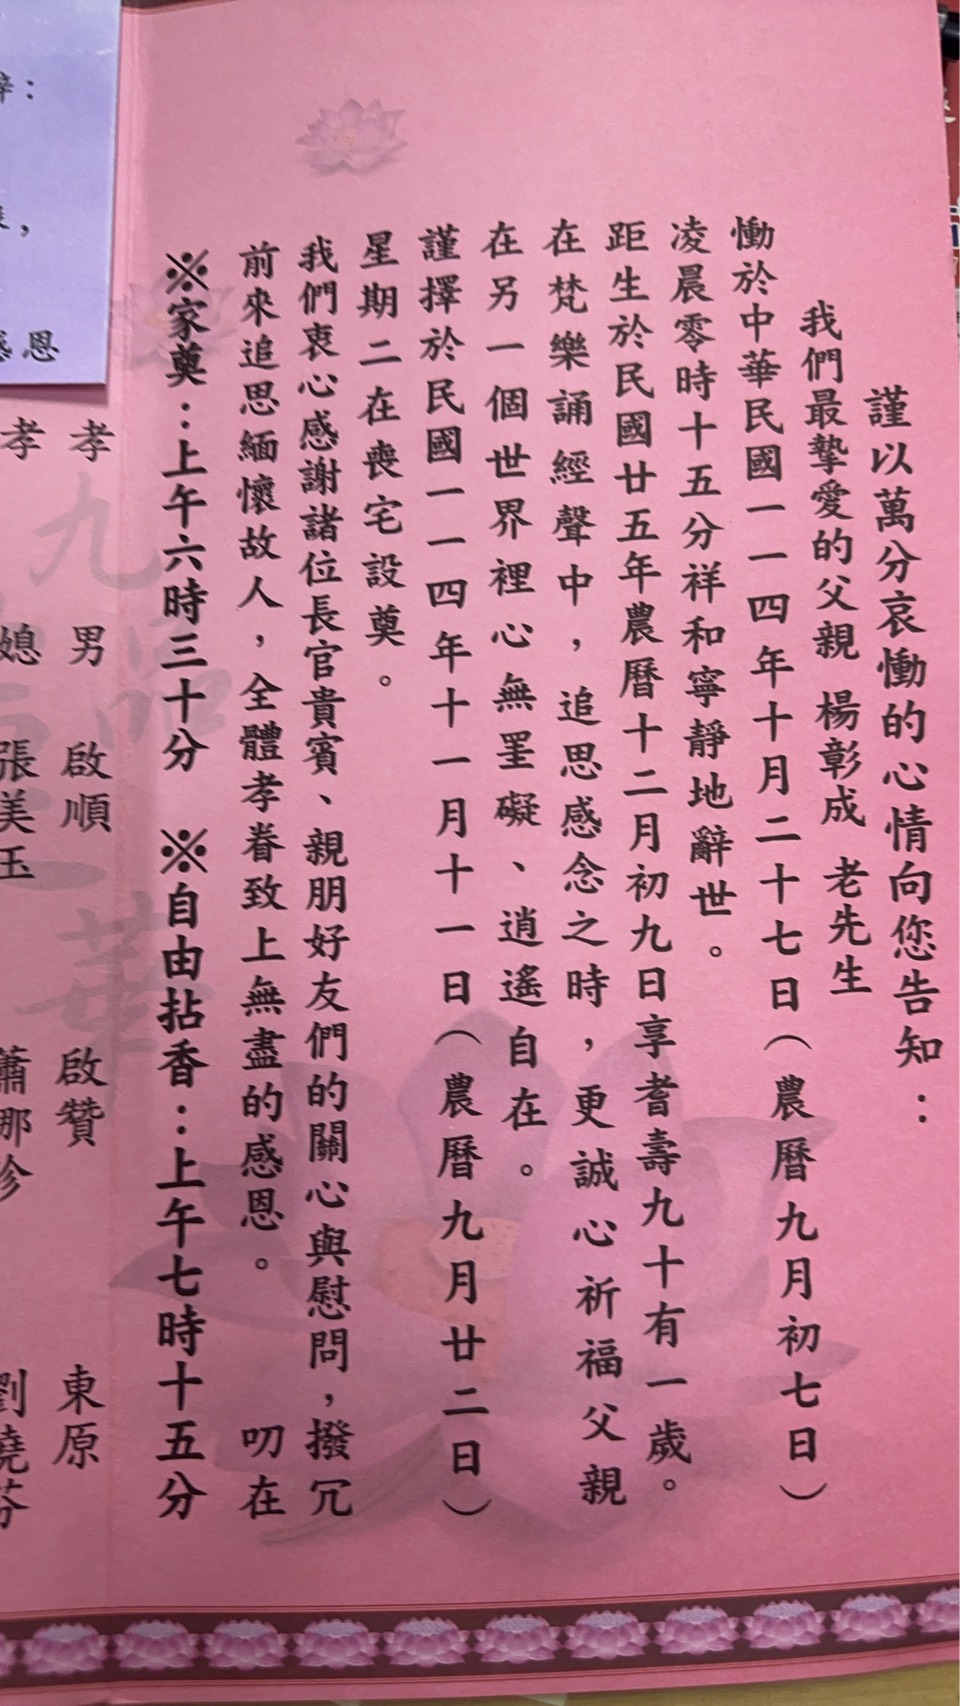 謹以萬分哀慟的心情向您告知：
我們最摯愛的父親 楊彰成 老先生
慟於中華民國一一四年十月二十七日（農曆九月初七日）
凌晨零時十五分祥和寧靜地辭世。
距生於民國廿五年農曆十二月初九日享耆壽九十有一歲。
在梵樂誦經聲中，追思感念之時，更誠心祈福父親
在另一個世界裡心無罣礙、逍遙自在。
謹擇於民國一一四年十一月十一日（農曆九月廿二日）
星期二在喪宅設奠。
我們衷心感謝諸位長官貴賓、親朋好友們的關心與慰問，撥冗
前來追思緬懷故人，全體孝眷致上無盡的感恩。 叨在
※家奠：上午六時三十分 ※自由拈香：上午七時十五分
孝 男 啟順 啟贊 東原
孝 媳 張美玉 蕭娜珍 劉曉芬
辭：
感恩
九品蓮華